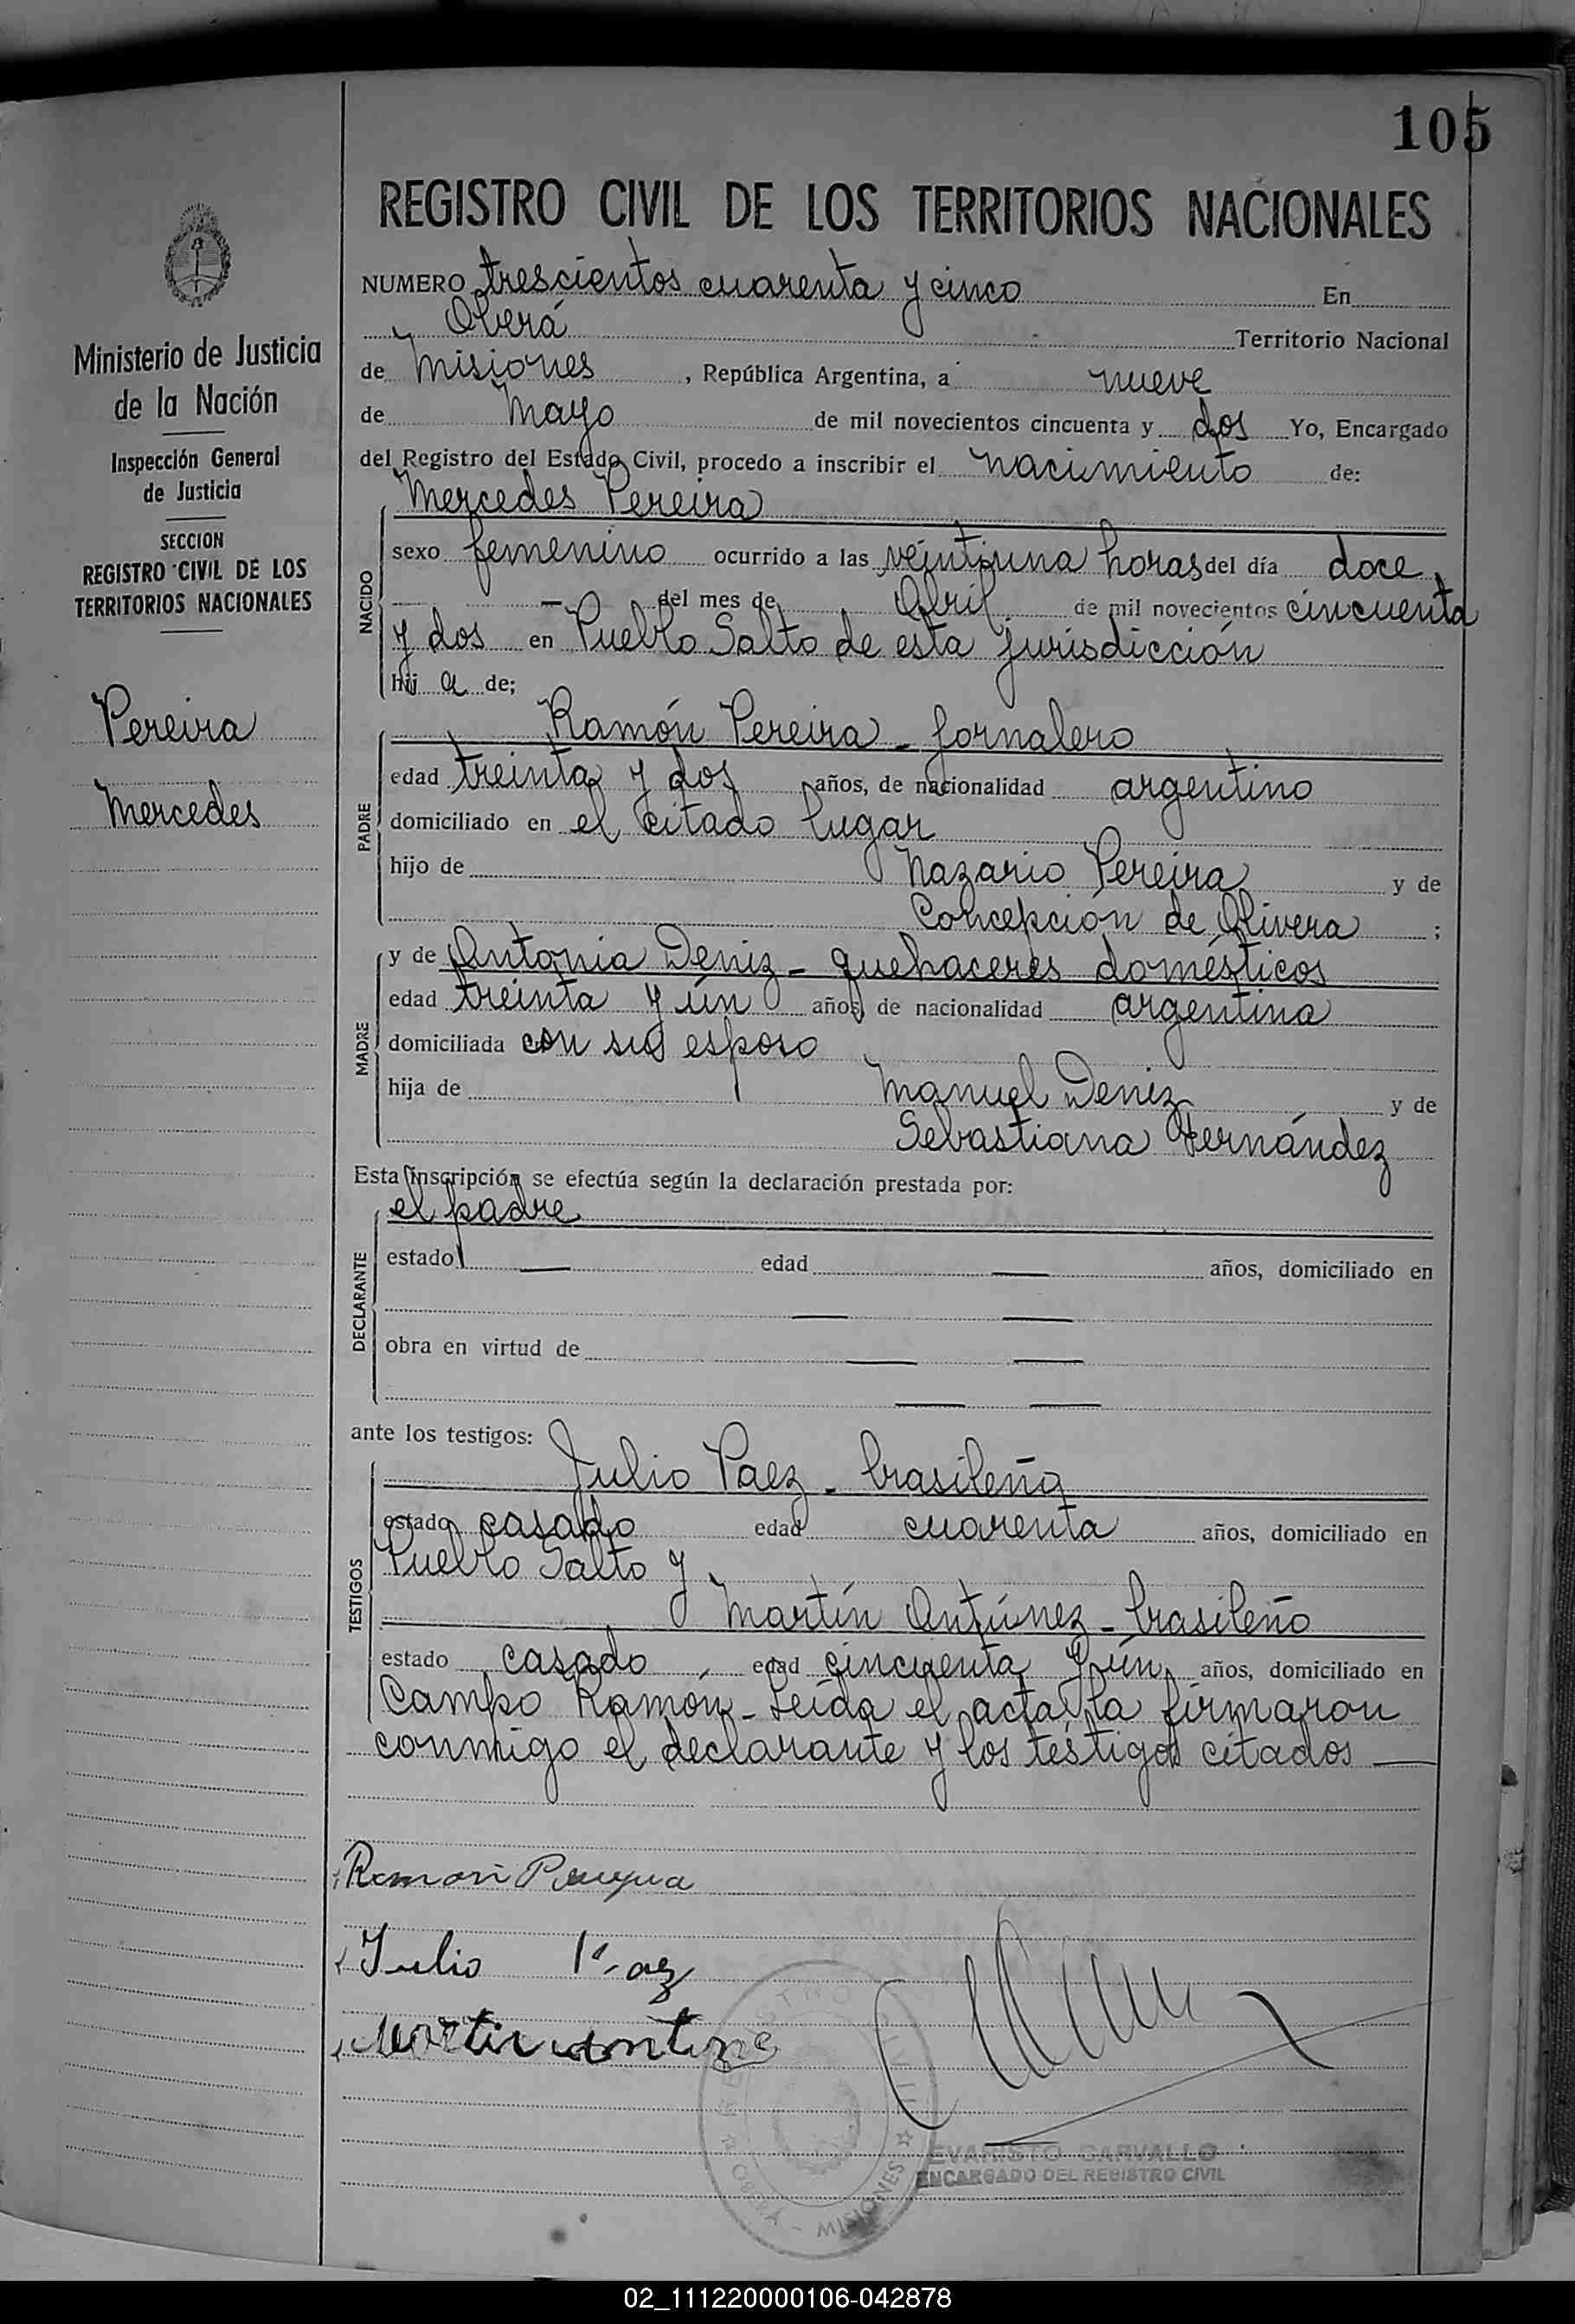 105
REGISTRO CIVIL DE LOS TERRITORIOS NACIONALES
Ministerio de Justicia
de la Nación
Inspección General
de Justicia
SECCION
REGISTRO CIVIL DE LOS
TERRITORIOS NACIONALES
Pereira
Mercedes
NUMERO trescientos cuarenta y cinco En
Oberá Territorio Nacional
de Misiones , República Argentina, a nueve
de Mayo de mil novecientos cincuenta y dos Yo, Encargado
del Registro del Estado Civil, procedo a inscribir el nacimiento de:
Mercedes Pereira
NACIDO
sexo femenino ocurrido a las veintiuna horas del día doce
— del mes de Abril de mil novecientos cincuenta
y dos en Pueblo Salto de esta jurisdicción
hij a de;
Ramón Pereira - jornalero
PADRE
edad treinta y dos años, de nacionalidad argentino
domiciliado en el citado lugar
hijo de Nazario Pereira y de
Concepción de Olivera ;
y de Antonia Deniz - quehaceres domésticos
MADRE
edad treinta y ún años, de nacionalidad argentina
domiciliada con su esposo
hija de Manuel Deniz y de
Sebastiana Fernández
Esta inscripción se efectúa según la declaración prestada por:
el padre
DECLARANTE
estado — edad — años, domiciliado en
— —
obra en virtud de — —
— —
ante los testigos:
Julio Paez - brasileño
TESTIGOS
estado casado edad cuarenta años, domiciliado en
Pueblo Salto y
Martín Antúnez - brasileño
estado casado, edad cincuenta y ún años, domiciliado en
Campo Ramón - Leída el acta, la firmaron
conmigo el declarante y los testigos citados —
Ramon
Julio Paez
EVARISTO CARVALLO
ENCARGADO DEL REGISTRO CIVIL
REGISTRO CIVIL
OBERA - MISIONES
02_111220000106-042878